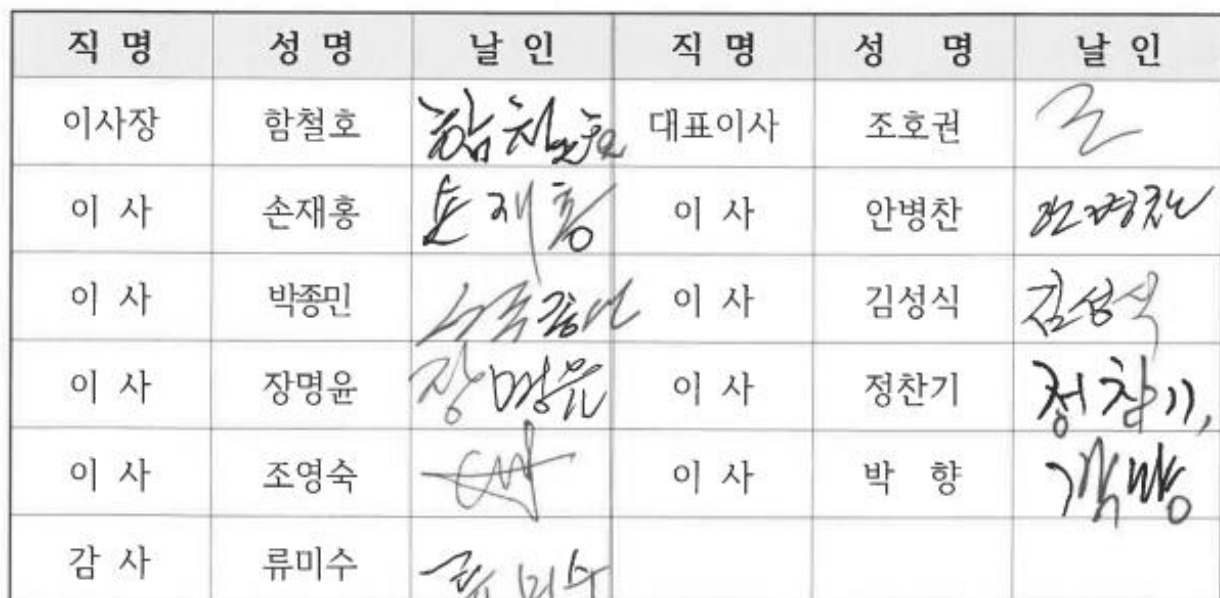 직 명 성 명 날 인 직 명 성 명 날 인
이사장 함철호 함철호 대표이사 조호권
이 사 손재홍 손재홍 이 사 안병찬 안병찬
이 사 박종민 박종민 이 사 김성식 김성식
이 사 장명윤 장명윤 이 사 정찬기 정찬기
이 사 조영숙 이 사 박 향
감 사 류미수 류미수